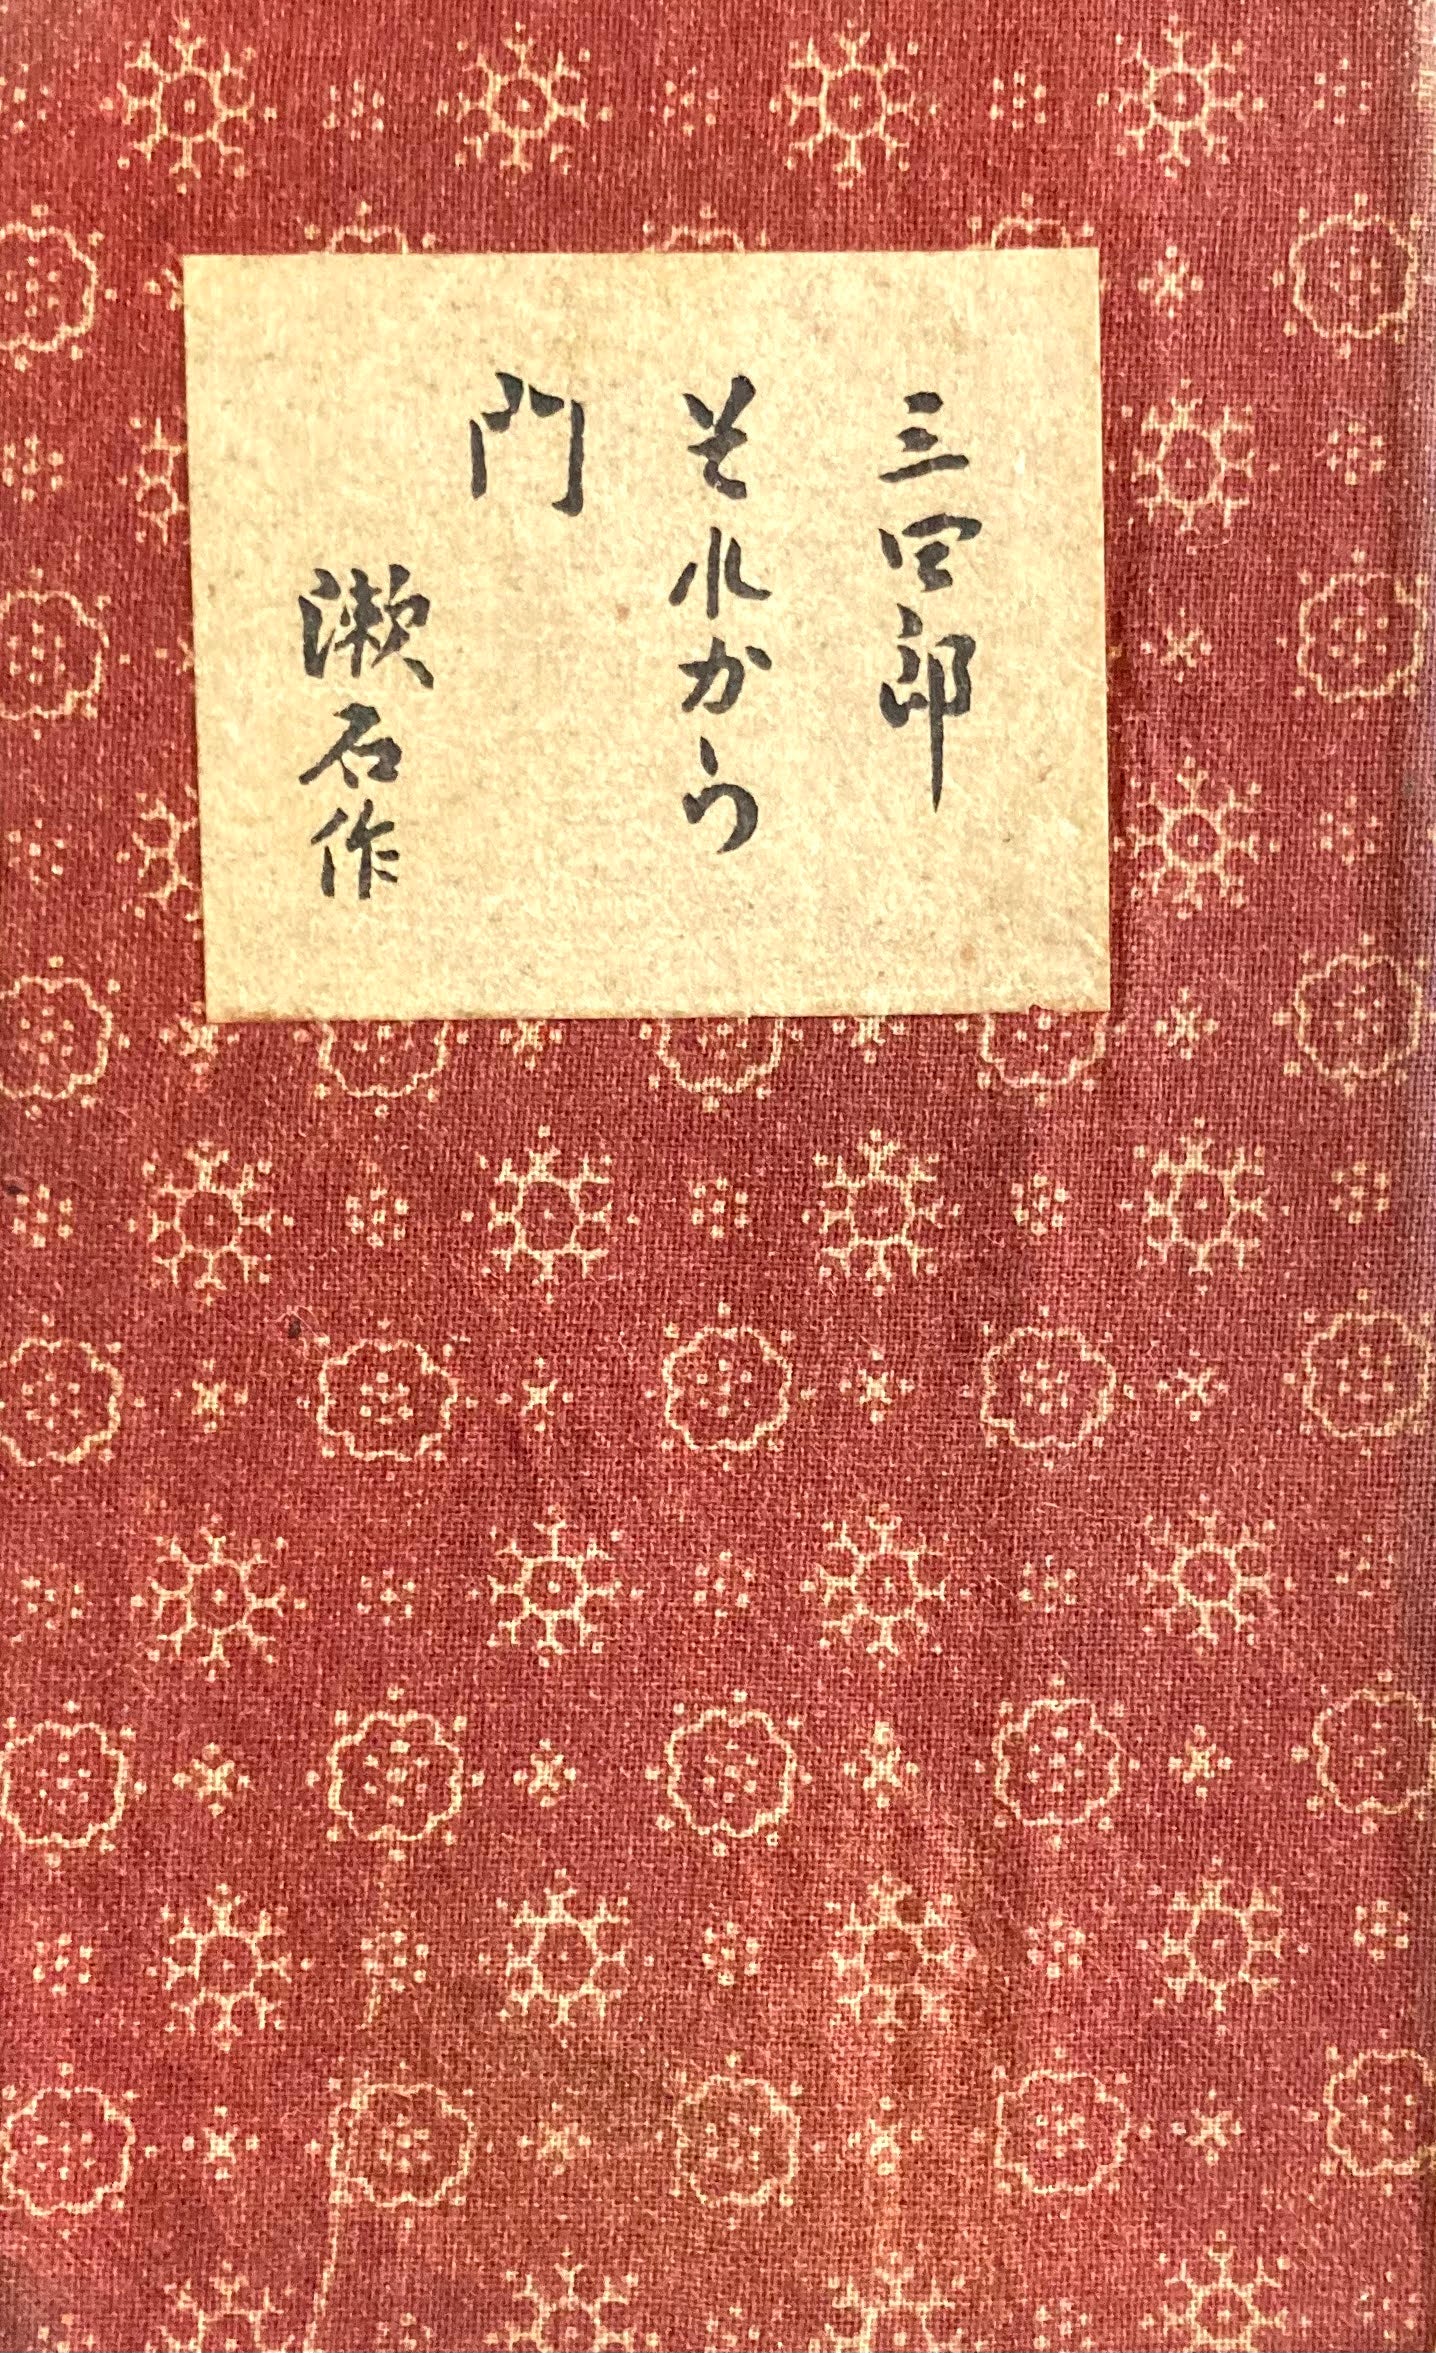 三四郎
それから
門
漱石作